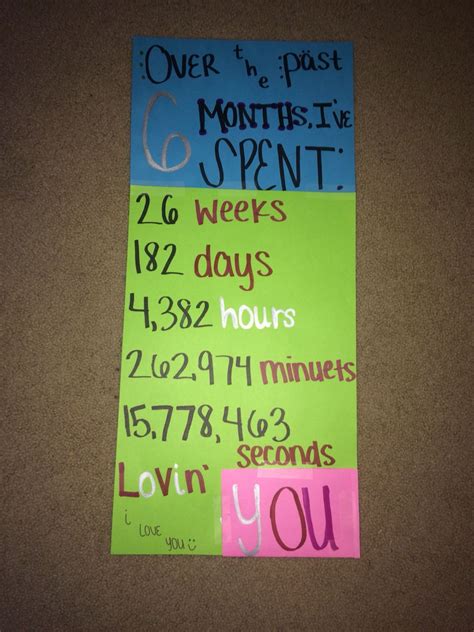 OVER the past
6 MONTHS, I've
SPENT:
26 weeks
182 days
4,382 hours
262,974 minuets
15,778,463
seconds
Lovin' YOU
i
LOVE
YOU :)